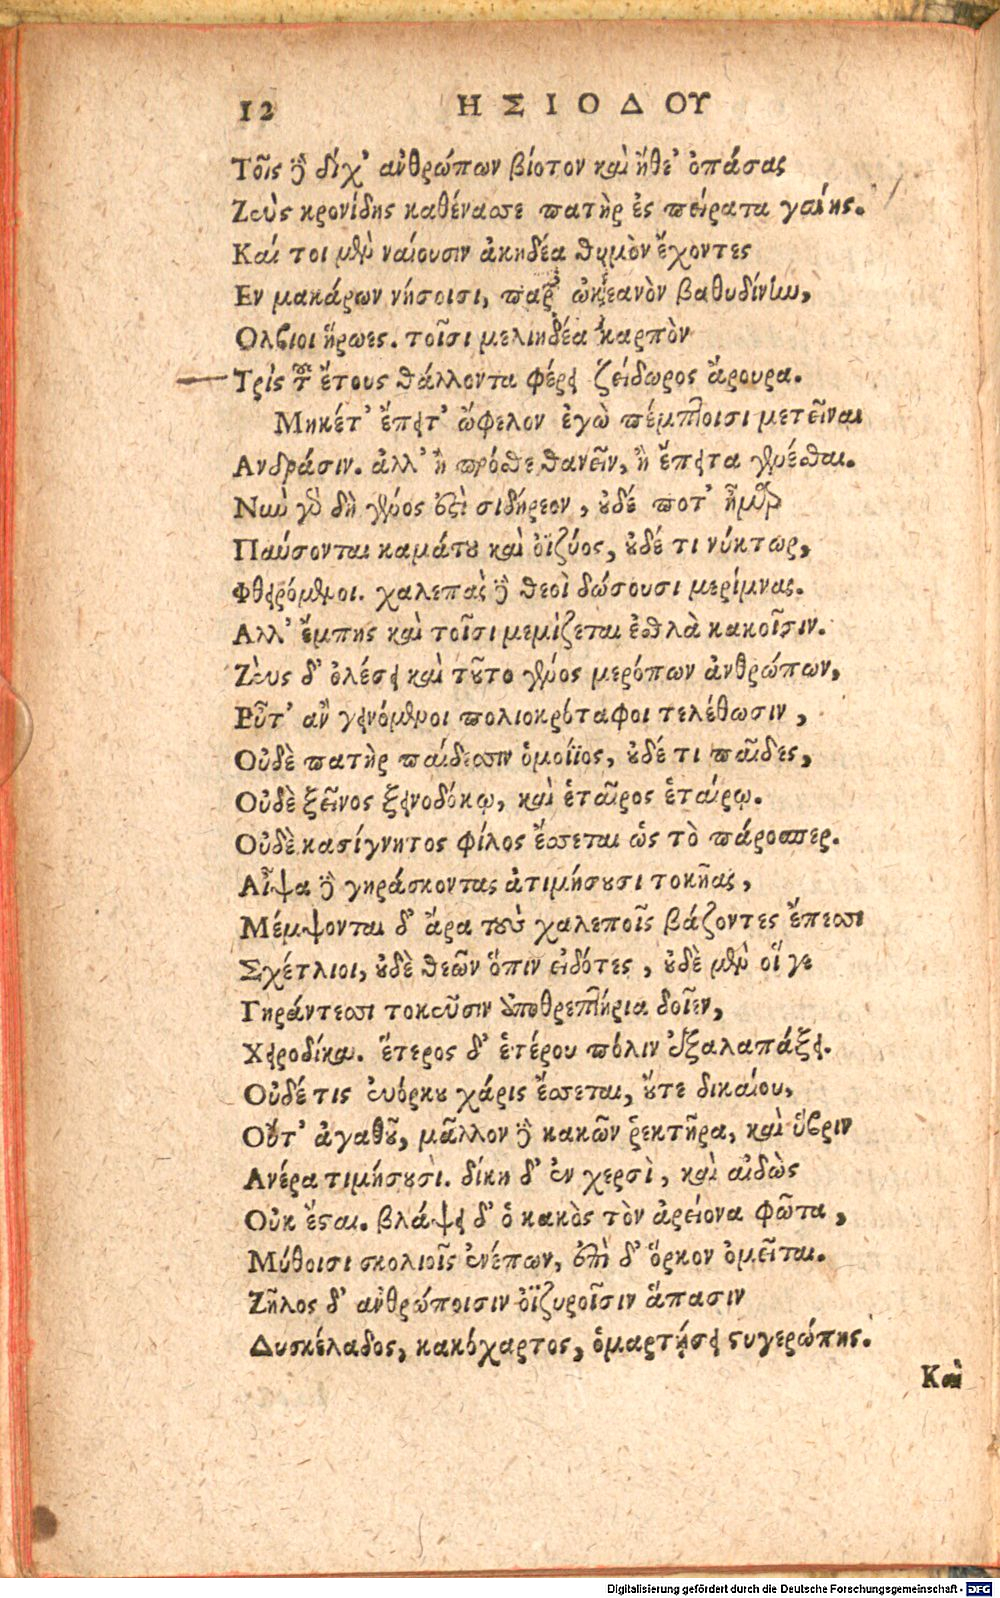 12 ΗΣΙΟΔΟΥ
Τοῖς δὲ δίχ' ἀνθρώπων βίοτον καὶ ἤθε' ὀπάσας
Ζεὺς κρονίδης καθένασσε πατὴρ ἐς πείρατα γαίης.
Καί τοι μὲν ναίουσιν ἀκηδέα θυμὸν ἔχοντες
Εν μακάρων νήσοισι, παρ' ὠκεανὸν βαθυδίνην,
Ολβιοι ἥρωες. τοῖσι μελιηδέα καρπὸν
Τρὶς τοῦ ἔτους θάλλοντα φέρει ζείδωρος ἄρουρα.
Μηκέτ' ἔπειτ' ὤφελον ἐγὼ πέμπτοισι μετεῖναι
Ανδράσιν. ἀλλ' ἢ πρόσθε θανεῖν, ἢ ἔπειτα γενέσθαι.
Νῦν γὰρ δὴ γένος ἐστὶ σιδήρεον, οὐδέ ποτ' ἦμαρ
Παύσονται καμάτου καὶ ὀϊζύος, οὐδέ τι νύκτωρ,
Φθειρόμενοι. χαλεπὰς δὲ θεοὶ δώσουσι μερίμνας.
Αλλ' ἔμπης καὶ τοῖσι μεμίξεται ἐσθλὰ κακοῖσιν.
Ζεὺς δ' ὀλέσει καὶ τοῦτο γένος μερόπων ἀνθρώπων,
Εὖτ' ἂν γεινόμενοι πολιοκρόταφοι τελέθωσιν,
Οὐδὲ πατὴρ παίδεσσιν ὁμοίϊος, οὐδέ τι παῖδες,
Οὐδὲ ξεῖνος ξεινοδόκῳ, καὶ ἑταῖρος ἑταίρῳ.
Οὐδὲ κασίγνητος φίλος ἔσσεται ὡς τὸ πάροσπερ.
Αἶψα δὲ γηράσκοντας ἀτιμήσουσι τοκῆας,
Μέμψονται δ' ἄρα τοὺς χαλεποῖς βάζοντες ἔπεσσι
Σχέτλιοι, οὐδὲ θεῶν ὄπιν εἰδότες, οὐδὲ μὲν οἵ γε
Γηράντεσσι τοκεῦσιν ἀποθρεπτήρια δοῖεν,
Χειροδίκαι. ἕτερος δ' ἑτέρου πόλιν ἐξαλαπάξει.
Οὐδέ τις εὐόρκου χάρις ἔσσεται, οὔτε δικαίου,
Οὔτ' ἀγαθοῦ, μᾶλλον δὲ κακῶν ῥεκτῆρα, καὶ ὕβριν
Ανέρα τιμήσουσι. δίκη δ' ἐν χερσὶ, καὶ αἰδὼς
Οὐκ ἔσται. βλάψει δ' ὁ κακὸς τὸν ἀρείονα φῶτα,
Μύθοισι σκολιοῖς ἐνέπων, ἐπὶ δ' ὅρκον ὀμεῖται.
Ζῆλος δ' ἀνθρώποισιν ὀϊζυροῖσιν ἅπασιν
Δυσκέλαδος, κακόχαρτος, ὁμαρτήσει στυγερώπης.
Καὶ
Digitalisierung gefördert durch die Deutsche Forschungsgemeinschaft - DFG